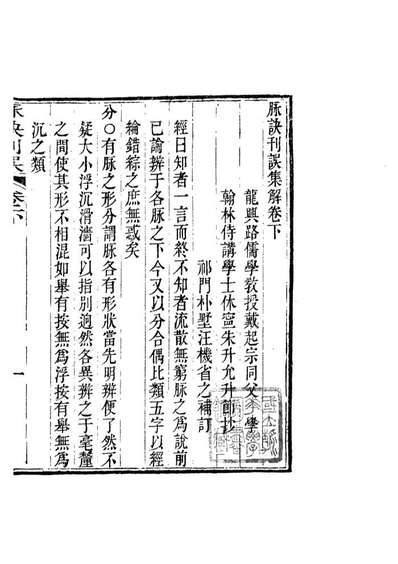 脉訣刊誤集解卷下
龍興路儒學教授戴起宗同父學
翰林侍講學士休寧朱升允升節抄
祁門朴墅汪機省之補訂
經曰知者一言而終不知者流散無窮脉之為說前
已論辨于各脉之下今又以分合偶比類五字以經
綸錯綜之庶無惑矣
分〇有脉之形分謂脉各有形狀當先明辨便了然不
疑大小浮沉滑濇可以指別逈然各異辨之于毫釐
之間使其形不相混如舉有按無為浮按有舉無為
沉之類
脉訣刊誤 卷下
一